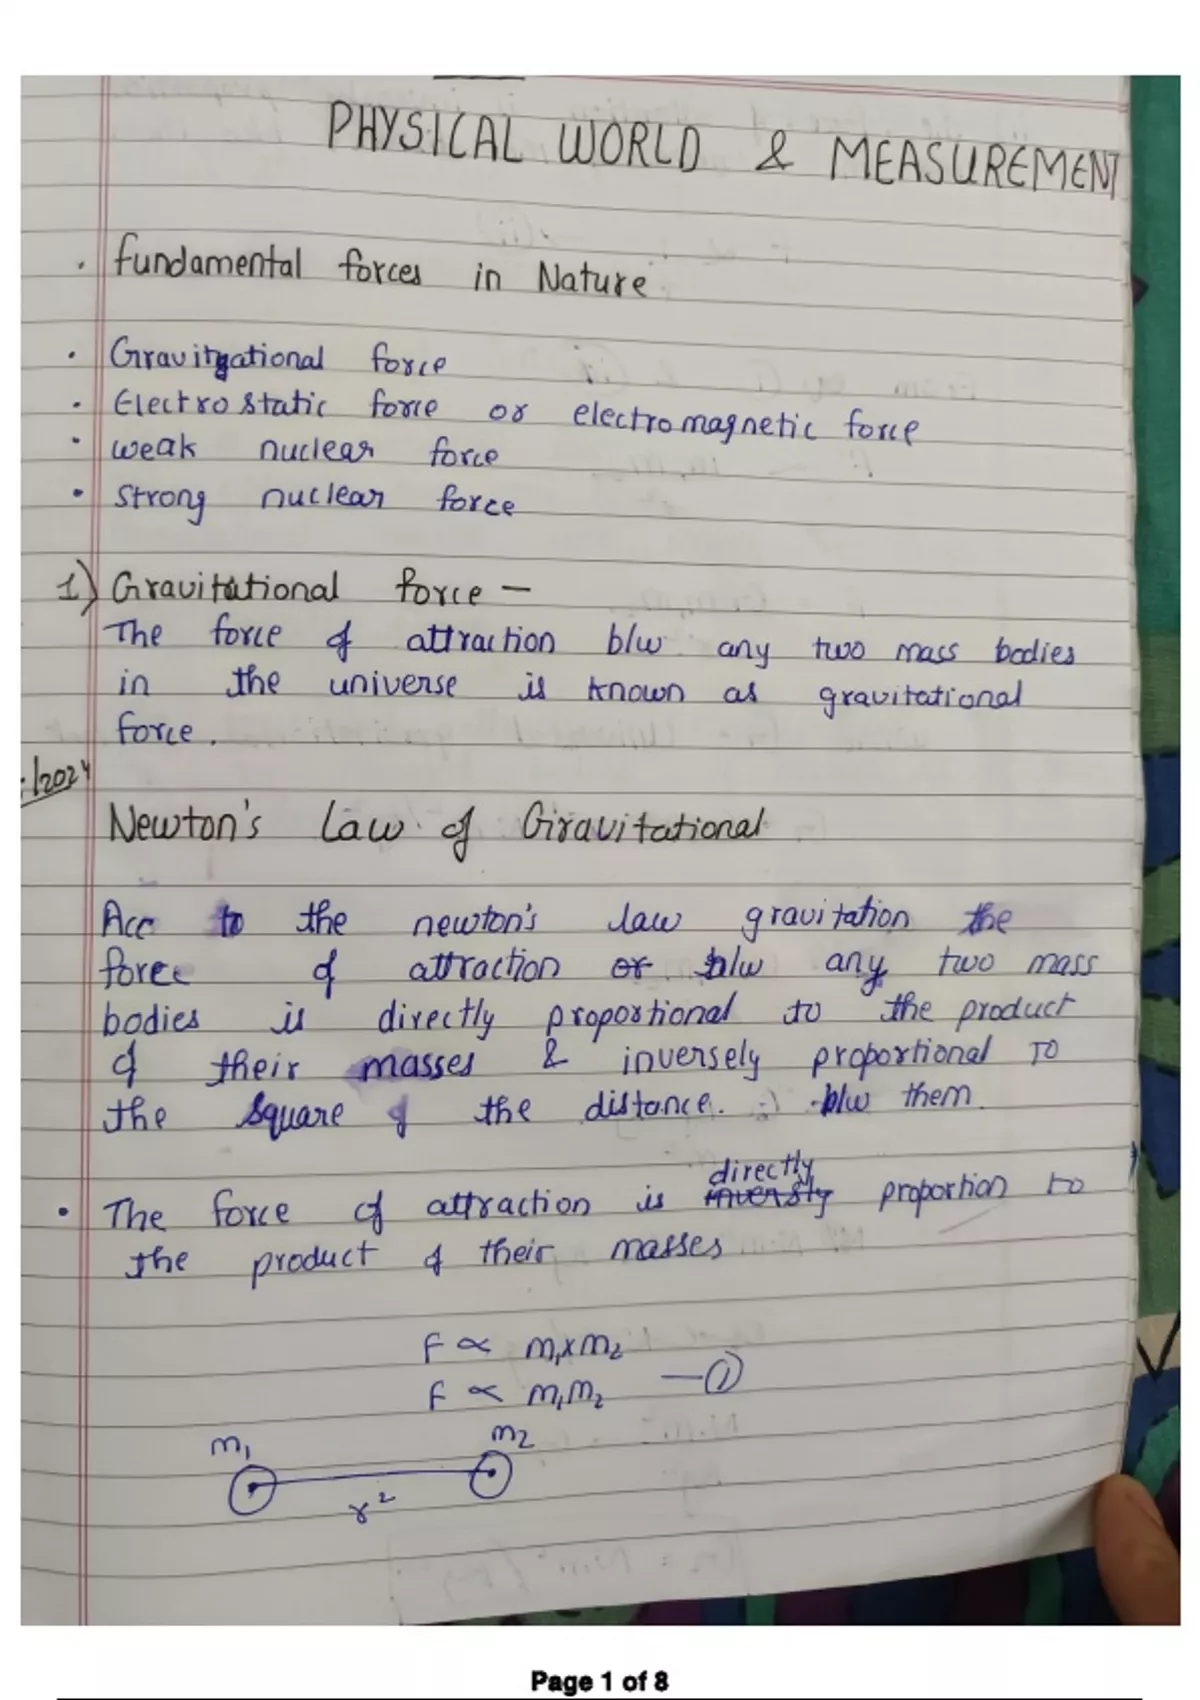 PHYSICAL WORLD & MEASUREMENT
. fundamental forces in Nature
• Gravitational force
• Electrostatic force or electromagnetic force
• weak nuclear force
• strong nuclear force
1) Gravitational force –
The force of attraction b/w any two mass bodies
in the universe is known as gravitational
force.
/2024
Newton's Law of Gravitational
Acc to the newton's law gravitation the
force of attraction or b/w any two mass
bodies is directly proportional to the product
of their masses & inversely proportional to
the square of the distance. b/w them.
directly
• The force of attraction is inversly proportion to
the product of their masses
F ∝ m₁xm₂
F ∝ m₁m₂ —①
m₁ m₂
r²
Page 1 of 8